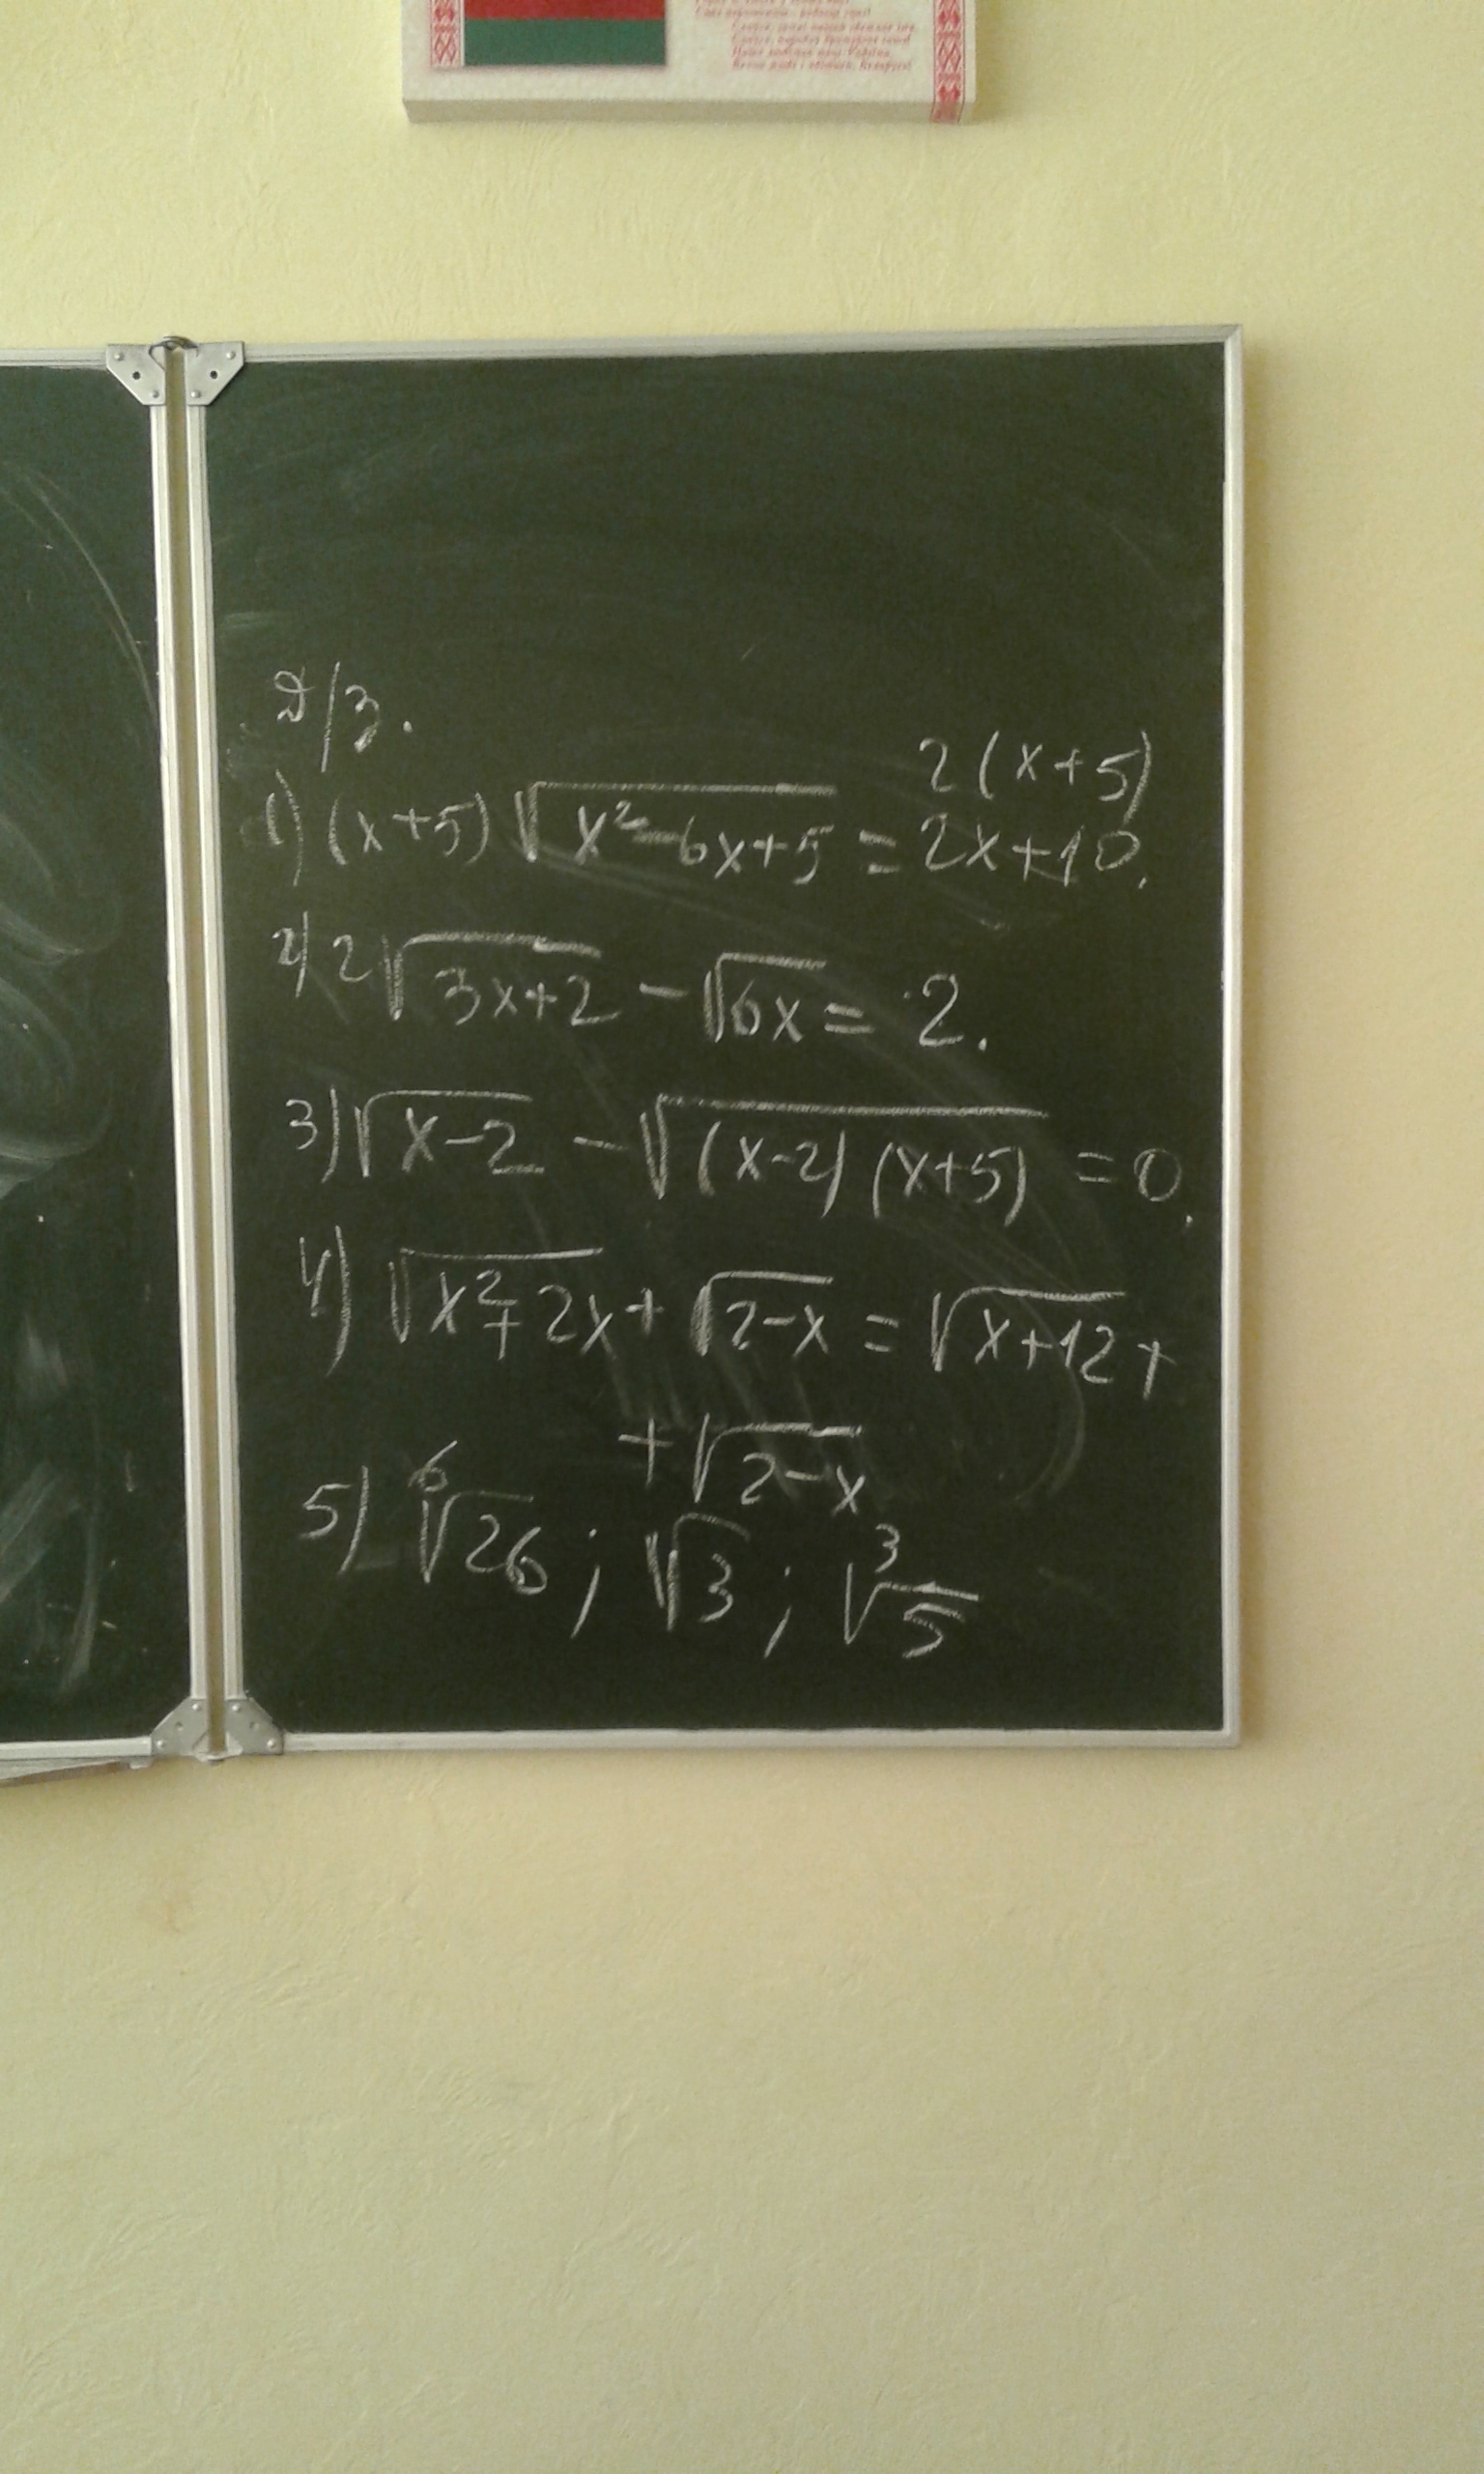 Д/З.
2(x+5)
1) (x+5)√(x²-6x+5) = 2x+10.
2) 2√(3x+2) - √(6x) = 2.
3) √(x-2) - √((x-2)(x+5)) = 0.
4) √(x²+2x) + √(2-x) = √(x+12) +
+ √(2-x)
5) ⁶√26; √3; ³√5